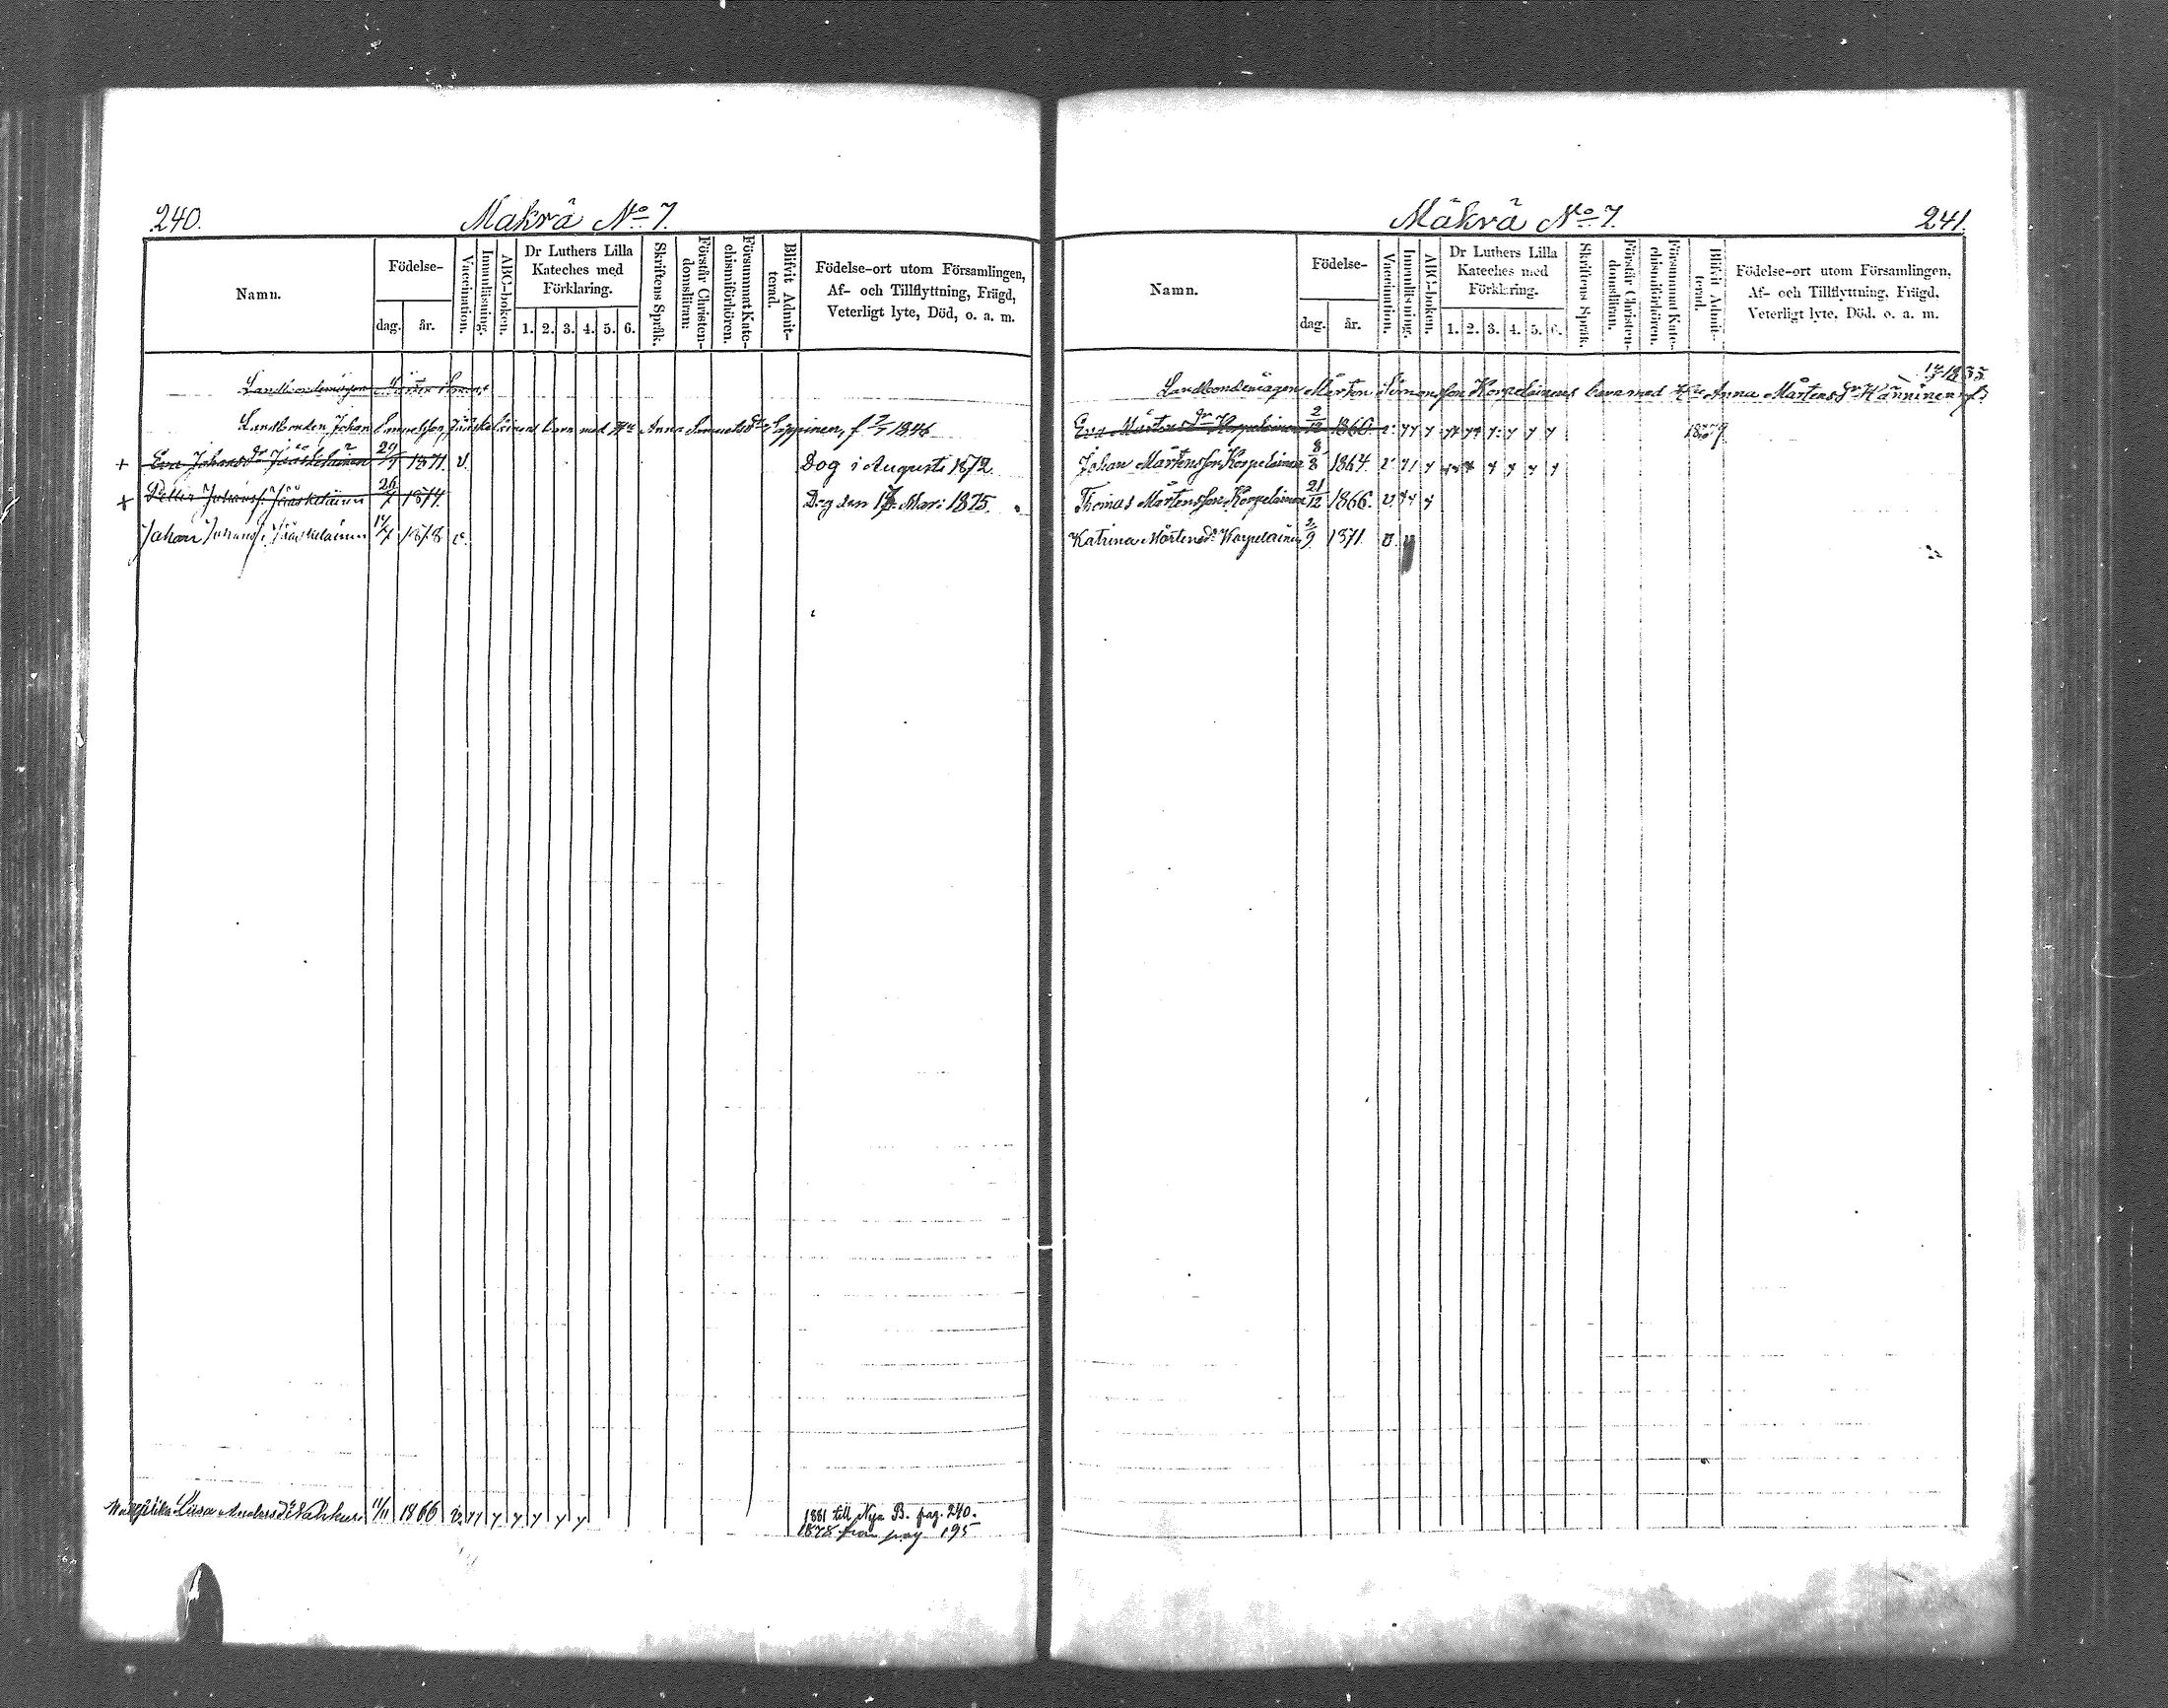 240.
Mäkrä No 7.
Namn.
Födelse-
dag.
år.
Vaccination.
Innanläsning.
ABC-boken.
Dr Luthers Lilla
Kateches med
Förklaring.
1. 2. 3. 4. 5. 6.
Skriftens Språk.
Förstår Christen-
domsläran:
Försummat Kate-
chismiförhören.
Blifvit Admit-
terad.
Födelse-ort utom Församlingen,
Af- och Tillflyttning, Frägd,
Veterligt lyte, Död, o. a. m.
Landbonden Johan Jääskeläinens barn med Hu Anna Lappinen, f. 2/7 1846
+ Eva Johansdr Jääskeläinen 1871. v. Dog i Augusti 1872.
+ Petter Johanss. Jääskeläinen 1874. Dog den Mars 1875.
Johan Johanss. Jääskeläinen 1878 v.
Liisa Andersdr 11/11 1866 v. y y y y y y y 1881 till Nya B. pag. 240.
1878 från pag 195
Mäkrä No 7.
241.
Namn.
Födelse-
dag.
år.
Vaccination.
Innanläsning.
ABC-boken.
Dr Luthers Lilla
Kateches med
Förklaring.
1. 2. 3. 4. 5. 6.
Skriftens Språk.
Förstår Christen-
domsläran.
Försummat Kate-
chismiförhören.
Blifvit Admit-
terad.
Födelse-ort utom Församlingen,
Af- och Tillflyttning, Frägd,
Veterligt lyte, Död. o. a. m.
Landbondemågen Mårten Simonsson Korpelainens barn med Hu Anna Mårtensdr Känninen f.
Eva Mårtensdr Korpelainen 2/12 1860.
Johan Mårtensson Korpelainen 8/8 1864.
Thomas Mårtensson Korpelainen 21/12 1866. v.
Katrina Mårtensdr Korpelainen 2/9 1871. v.